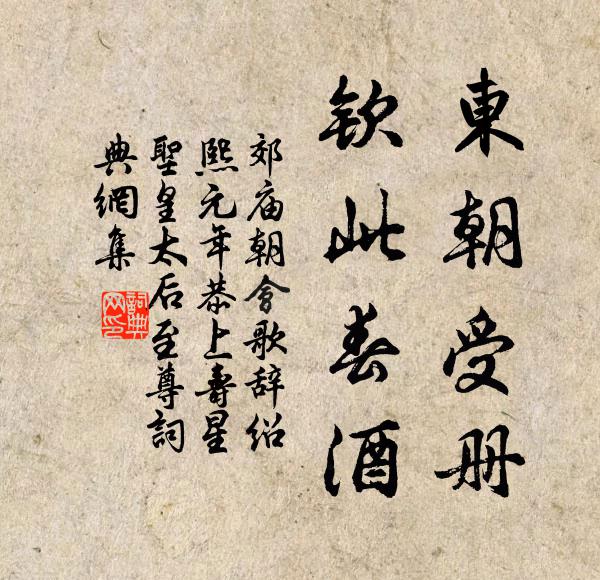 東朝受册
欽此春酒
郊庙朝會歌辞绍
熙元年恭上壽星
聖皇太后至尊詞
典網集
詞典網印